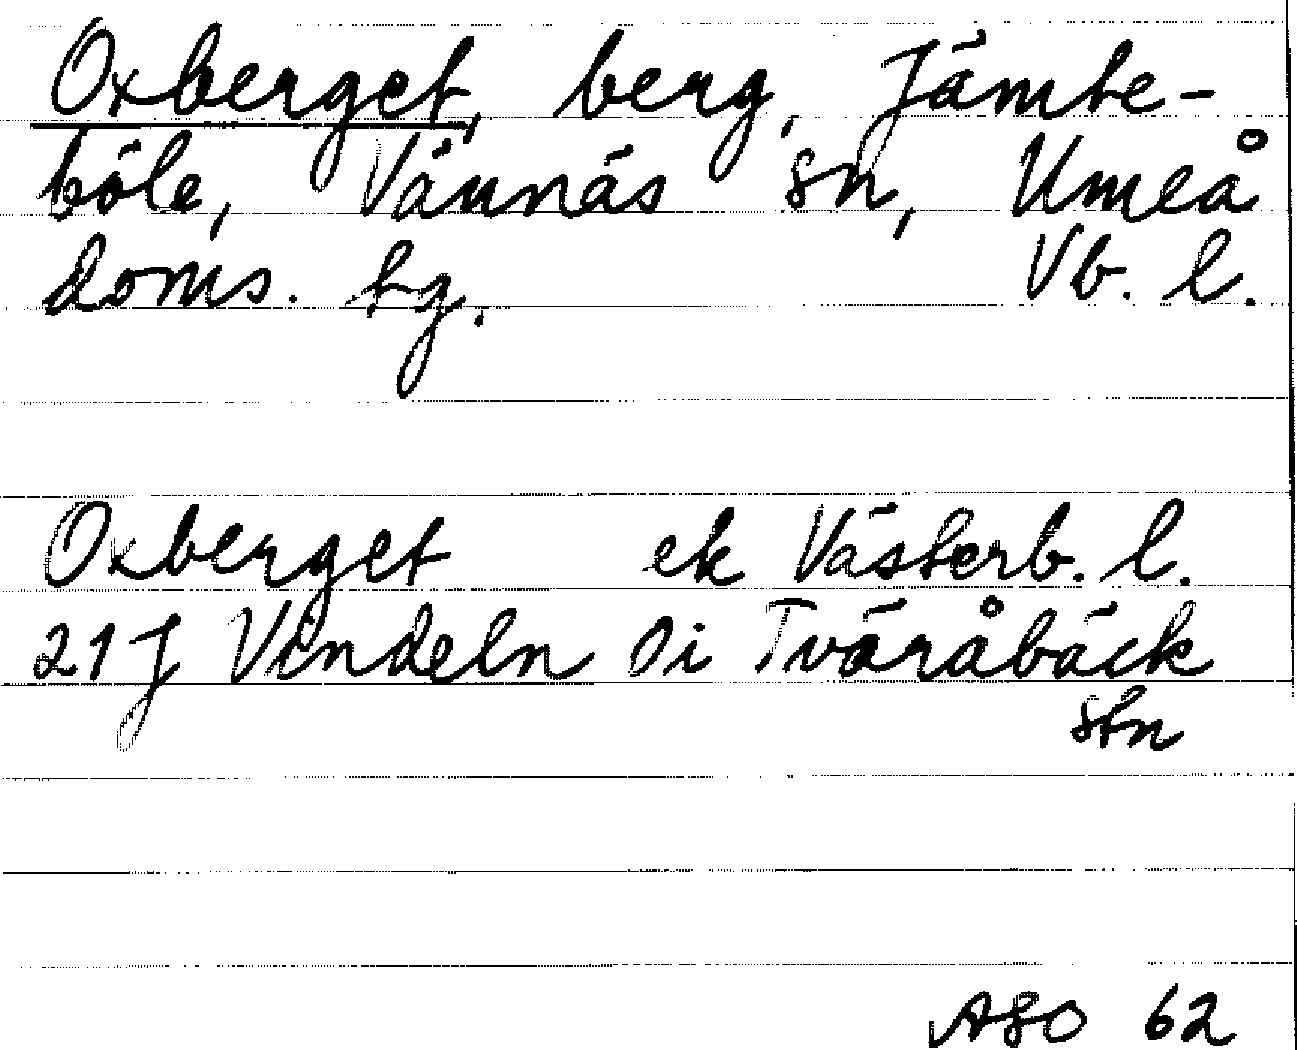 Oxberget, berg, Jämte-
böle, Vännäs sn, Umeå
doms. hg. Vb. l.
Oxberget ek Västerb. l.
21J Vindeln Oi Tväråbäck
stn
ASO 62